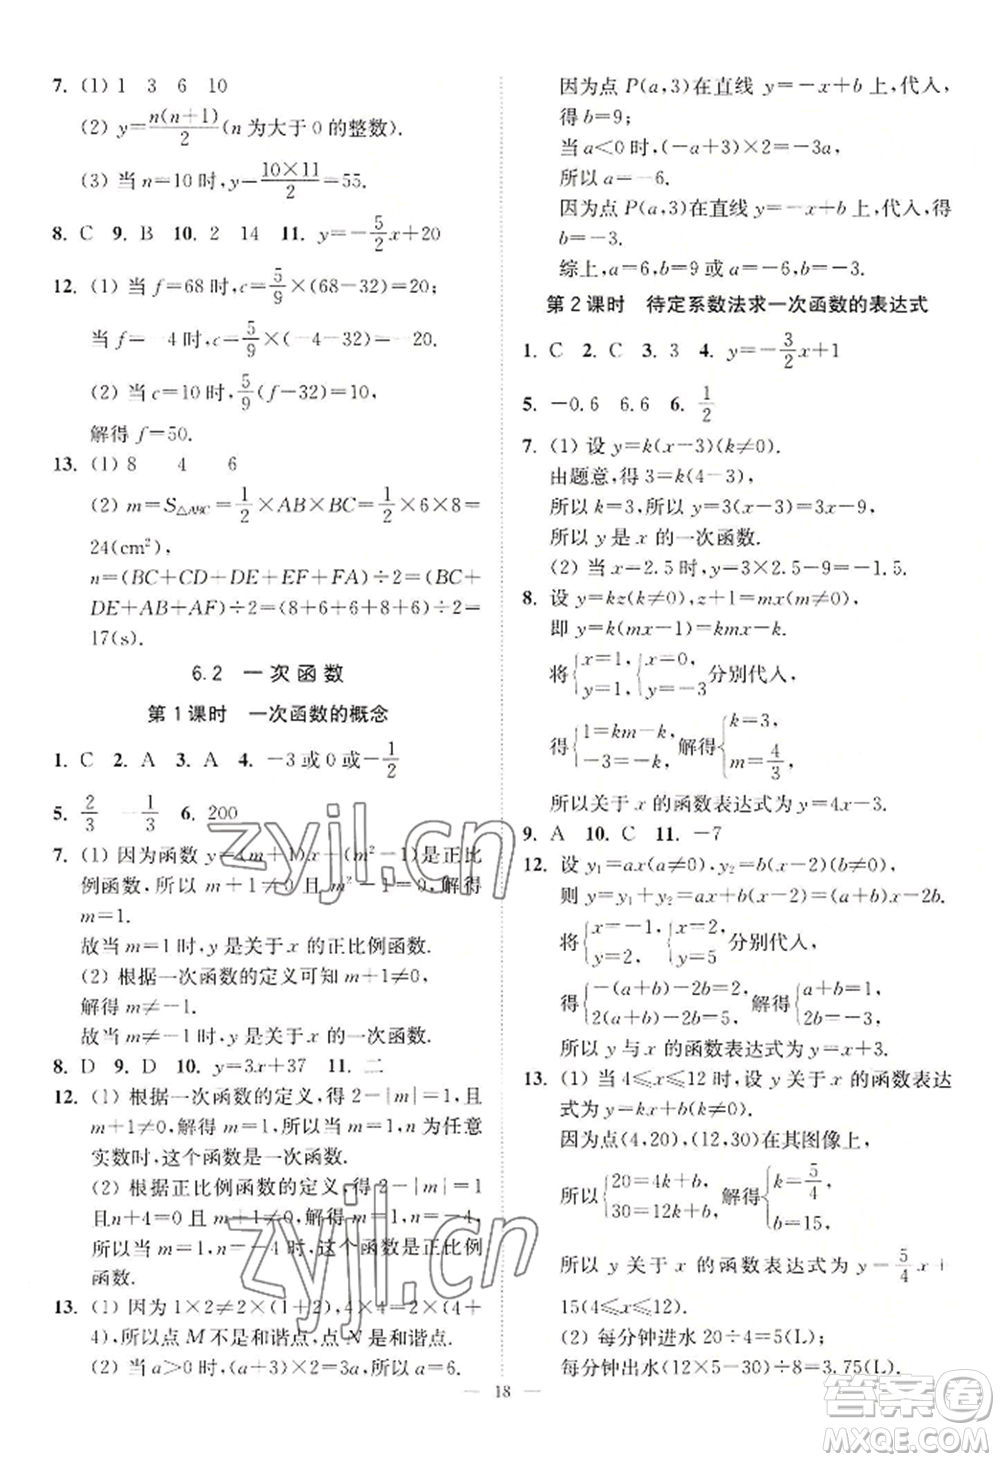 7. (1) 1 3 6 10
(2) y=n(n+1)/2(n 为大于 0 的整数).
(3) 当 n=10 时,y=10×11/2=55.
8. C 9. B 10. 2 14 11. y=-5/2x+20
12. (1) 当 f=68 时,c=5/9×(68-32)=20.
当 f=-4 时,c=5/9×(-4-32)=-20.
(2) 当 c=10 时,5/9(f-32)=10,
解得 f=50.
13. (1) 8 4 6
(2) m=S△ABC=1/2×AB×BC=1/2×6×8=
24(cm²),
n=(BC+CD+DE+EF+FA)÷2=(BC+
DE+AB+AF)÷2=(8+6+6+8+6)÷2=
17(s).
6.2 一次函数
第 1 课时 一次函数的概念
1. C 2. A 3. A 4. -3 或 0 或-1/2
5. 2/3 -1/3 6. 200
7. (1) 因为函数 y=(m+1)x+(m²-1)是正比
例函数,所以 m+1≠0 且 m²-1=0,解得
m=1.
故当 m=1 时,y 是关于 x 的正比例函数.
(2) 根据一次函数的定义可知 m+1≠0,
解得 m≠-1.
故当 m≠-1 时,y 是关于 x 的一次函数.
8. D 9. D 10. y=3x+37 11. 二
12. (1) 根据一次函数的定义,得 2-|m|=1,且
m+1≠0,解得 m=1,所以当 m=1,n 为任意
实数时,这个函数是一次函数.
(2) 根据正比例函数的定义,得 2-|m|=1
且n+4=0,m+1≠0,解得 m=1,n=-4,
所以当 m=1,n=-4时,这个函数是正比例
函数.
13. (1) 因为 1×2≠2×(1+2),4×4=2×(4+
4),所以点 M 不是和谐点,点 N 是和谐点.
(2) 当 a>0 时,(a+3)×2=3a,所以 a=6.
因为点 P(a,3)在直线 y=-x+b 上,代入,
得 b=9;
当 a<0 时,(-a+3)×2=-3a,
所以 a=-6.
因为点 P(a,3)在直线 y=-x+b 上,代入,得
b=-3.
综上,a=6,b=9 或 a=-6,b=-3.
第 2 课时 待定系数法求一次函数的表达式
1. C 2. C 3. 3 4. y=-3/2x+1
5. -0.6 6.6 6. 1/2
7. (1) 设 y=k(x-3)(k≠0).
由题意,得 3=k(4-3),
所以 k=3,所以 y=3(x-3)=3x-9,
所以 y是 x 的一次函数.
(2) 当 x=2.5 时,y=3×2.5-9=-1.5.
8. 设 y=kz(k≠0),z+1=mx(m≠0),
即 y=k(mx-1)=kmx-k.
将{x=1, y=1, {x=0, y=-3 分别代入,
得{1=km-k, -3=-k, 解得{k=3, m=4/3,
所以关于 x 的函数表达式为 y=4x-3.
9. A 10. C 11. -7
12. 设 y₁=ax(a≠0),y₂=b(x-2)(b≠0),
则 y=y₁+y₂=ax+b(x-2)=(a+b)x-2b.
将{x=-1, y=2, {x=2, y=5 分别代入,
得{-(a+b)-2b=2, 2(a+b)-2b=5, 解得{a+b=1, 2b=-3,
所以 y 与 x 的函数表达式为 y=x+3.
13. (1) 当 4≤x≤12 时,设 y 关于 x 的函数表达
式为 y=kx+b(k≠0).
因为点(4,20),(12,30)在其图像上,
所以{20=4k+b, 30=12k+b, 解得{k=5/4, b=15,
所以 y 关于 x 的函数表达式为 y=5/4x+
15(4≤x≤12).
(2) 每分钟进水 20÷4=5(L);
每分钟出水(12×5-30+20)÷8=3.75(L).
18
zyjl.cn
zyjl.cn
答案圈
MXQE.COM